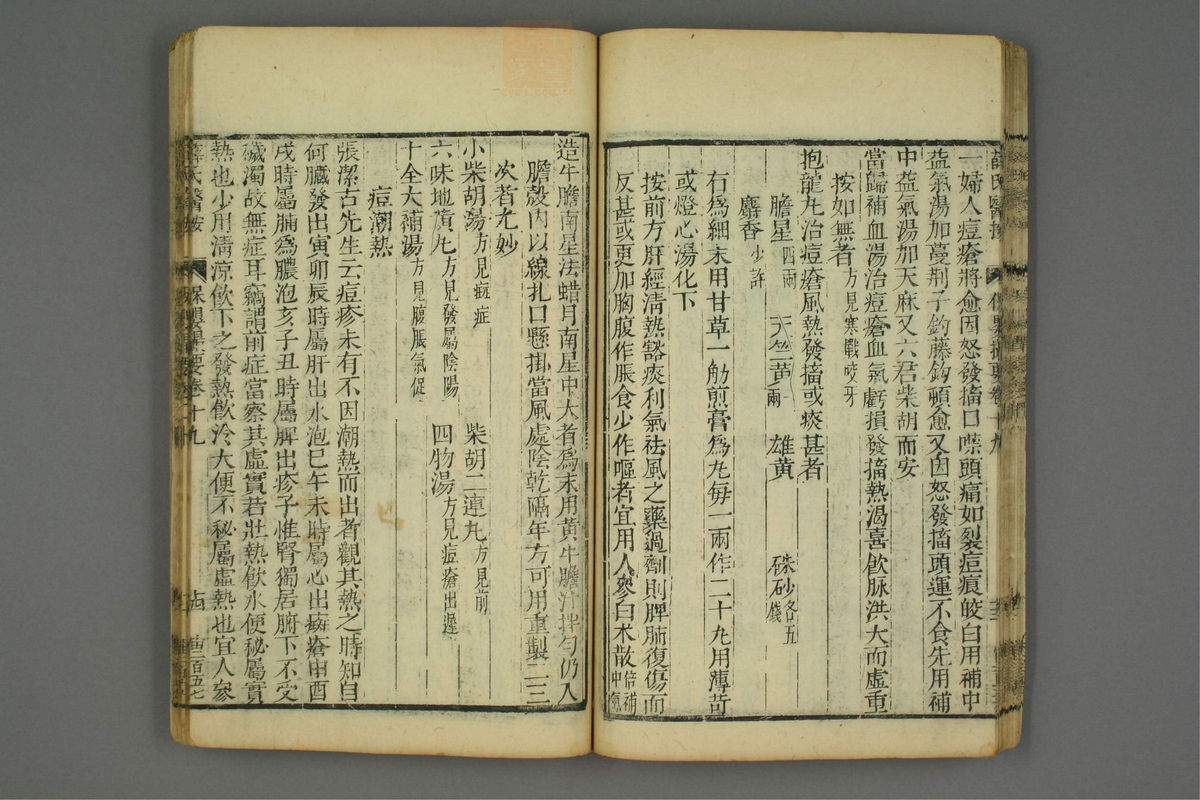 一婦人痘瘡將愈因怒發搐口噤頭痛如裂痘痕皎白用補中
益氣湯加蔓荆子釣藤鈎頓愈又因怒發搐頭運不食先用補
中益氣湯加天麻又六君柴胡而安
當歸補血湯治痘瘡血氣虧損發搐熱渴喜飲脉洪大而虛重
按如無者方見寒戰咬牙
抱龍丸治痘瘡風熱發搐或痰甚者
膽星四兩 天竺黃一兩 雄黃 硃砂各五錢
麝香少許
右為細末用甘草一觔煎膏為丸每一兩作二十丸用薄苛
或燈心湯化下
按前方肝經清熱豁痰利氣祛風之藥過劑則脾肺復傷而
反甚或更加胸腹作脹食少作嘔者宜用人參白术散倍補中氣
造牛膽南星法蜡月南星中大者為末用黃牛膽汁拌勻仍入
膽殼內以線扎口懸掛當風處陰乾隔年方可用重製二三
次者尤妙
小柴胡湯方見癍症 柴胡二連丸方見前
六味地黃丸方見發屬陰陽 四物湯方見痘瘡出遲
十全大補湯方見腹脹氣促
痘潮熱
張潔古先生云痘疹未有不因潮熱而出者觀其熱之時知自
何臟發出寅卯辰時屬肝出水泡巳午未時屬心出癍瘡申酉
戌時屬肺為膿泡亥子丑時屬脾出疹子惟腎獨居腑下不受
穢濁故無症耳竊謂前症當察其虛實若壯熱飲水便秘屬實
熱也少用清涼飲下之發熱飲冷大便不秘屬虛熱也宜人參
薛氏醫按 保嬰撮要卷十九